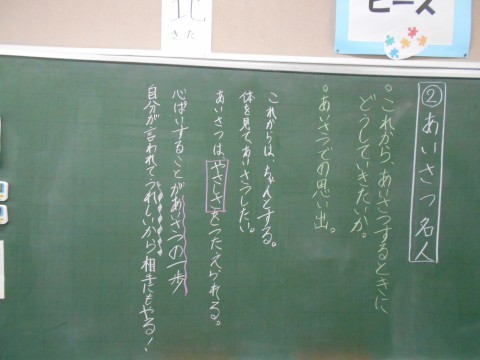 北
きた
ピース
②あいさつ名人
。これから、あいさつするときに
どうしていきたいか。
。あいさつでの思い出。
これからは、ちゃんとする。
体を見てあいさつしたい。
あいさつは、やさしさをつたえられる。
心ぱいすることがあいさつの一歩
自分が言われてうれしいから相手にもやる!